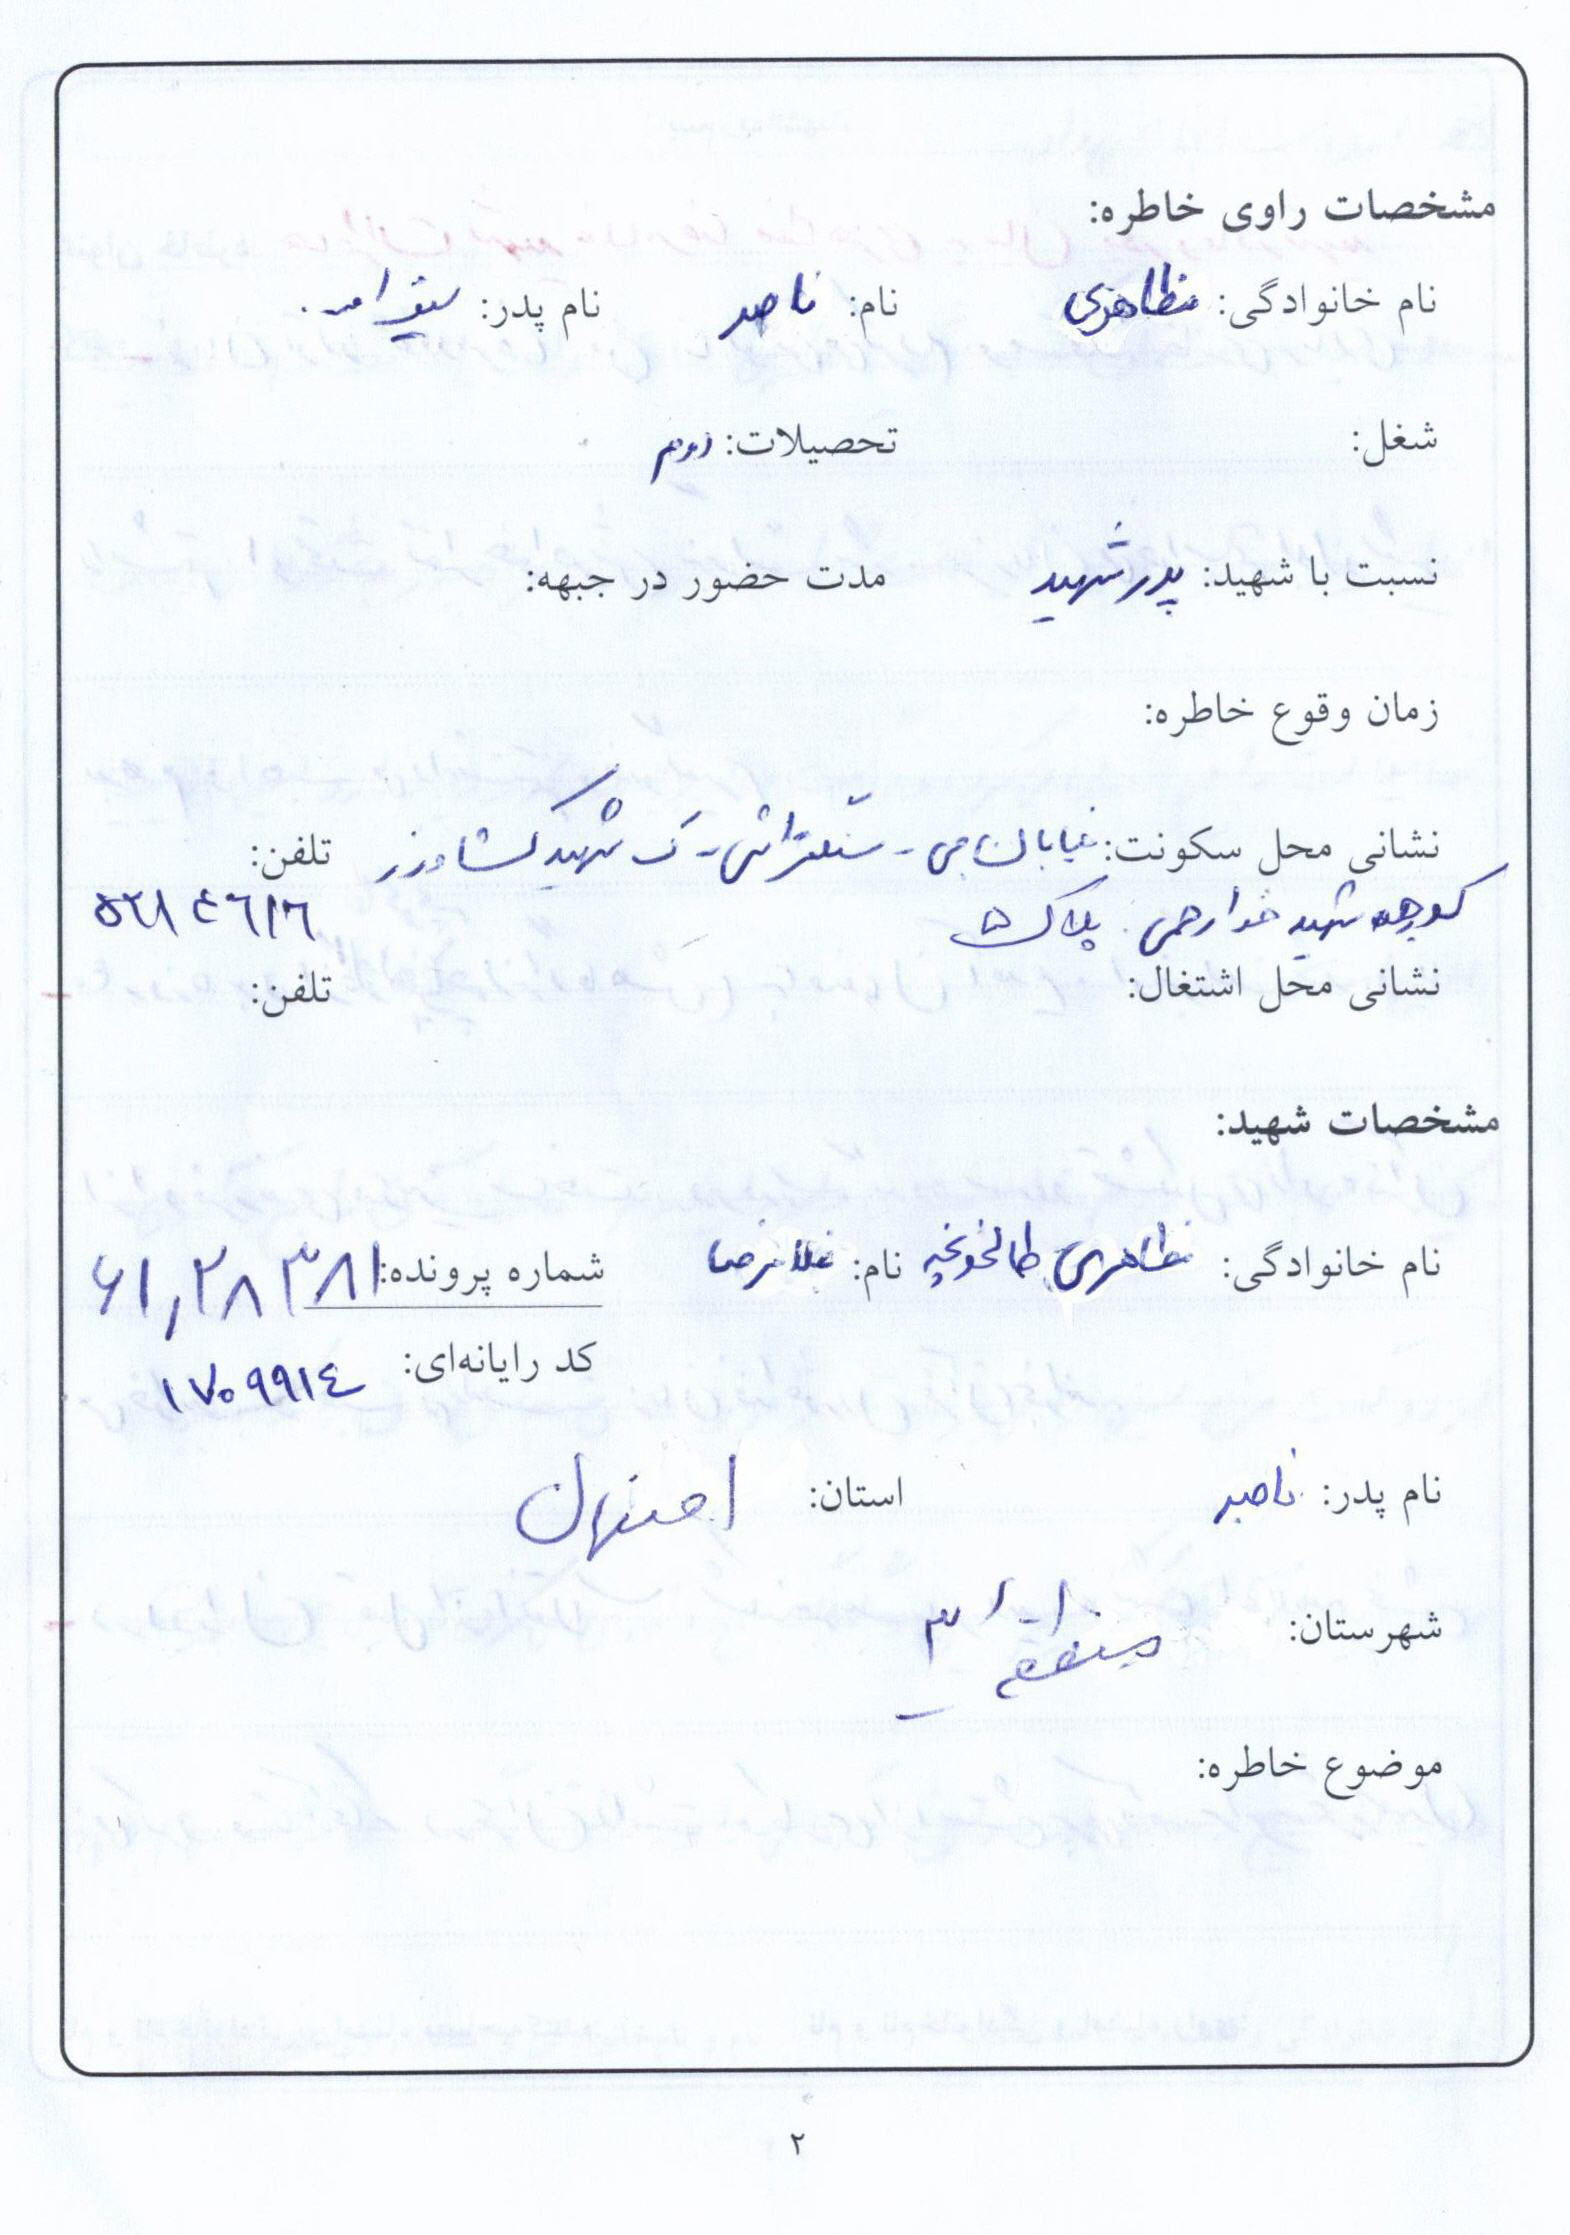 مشخصات راوی خاطره:
نام خانوادگی: مظاهری نام: ناصر نام پدر:
شغل: تحصیلات: دوم
نسبت با شهید: پدر شهید مدت حضور در جبهه:
زمان وقوع خاطره:
نشانی محل سکونت: خیابان جی - - ک شهید کشاورز تلفن:
کوچه شهید خوارزمی پلاک ۵ ۵۲۱۴۶۱۶
نشانی محل اشتغال: تلفن:
مشخصات شهید:
نام خانوادگی: مظاهری طالخونچه نام: غلامرضا شماره پرونده: ۶۱,۲۸۳۸۱
کد رایانه‌ای: ۱۷۰۹۹۱۴
نام پدر: ناصر استان: اصفهان
شهرستان: منطقه ۳
موضوع خاطره:
۲